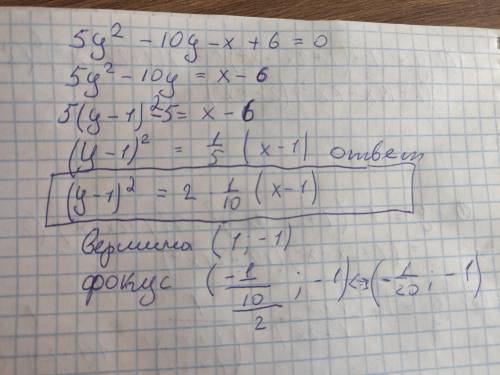 5y² - 10y - x + 6 = 0
5y² - 10y = x - 6
5(y - 1)² - 5 = x - 6
(y - 1)² = 1/5 (x - 1) ответ
(y - 1)² = 2 1/10 (x - 1)
Вершина (1; -1)
фокус (-1/10/2; -1) <=> (-1/20; -1)